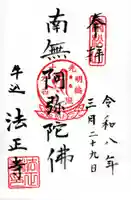 奉拝
令和八年
三月二十九日
南無阿弥陀佛
牛込
法正寺